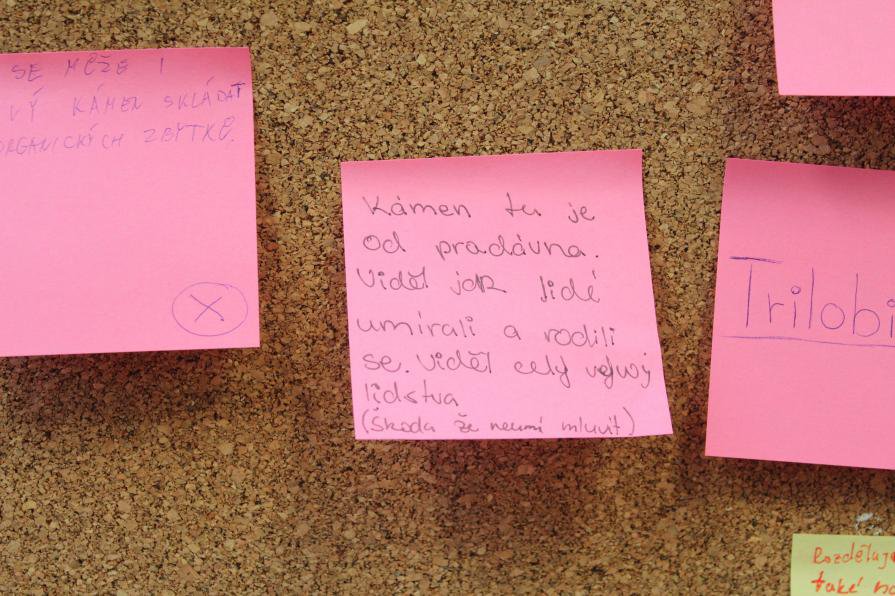 SE MŮŽE I
VÝ KÁMEN SKLÁDAT
ORGANICKÝCH ZBYTKŮ.
Kámen tu je
od pradávna.
Viděl jak lidé
umírali a rodili
se. Viděl celý vývoj
lidstva
(Škoda že neumí mluvit)
Trilobi
Rozděluj
také